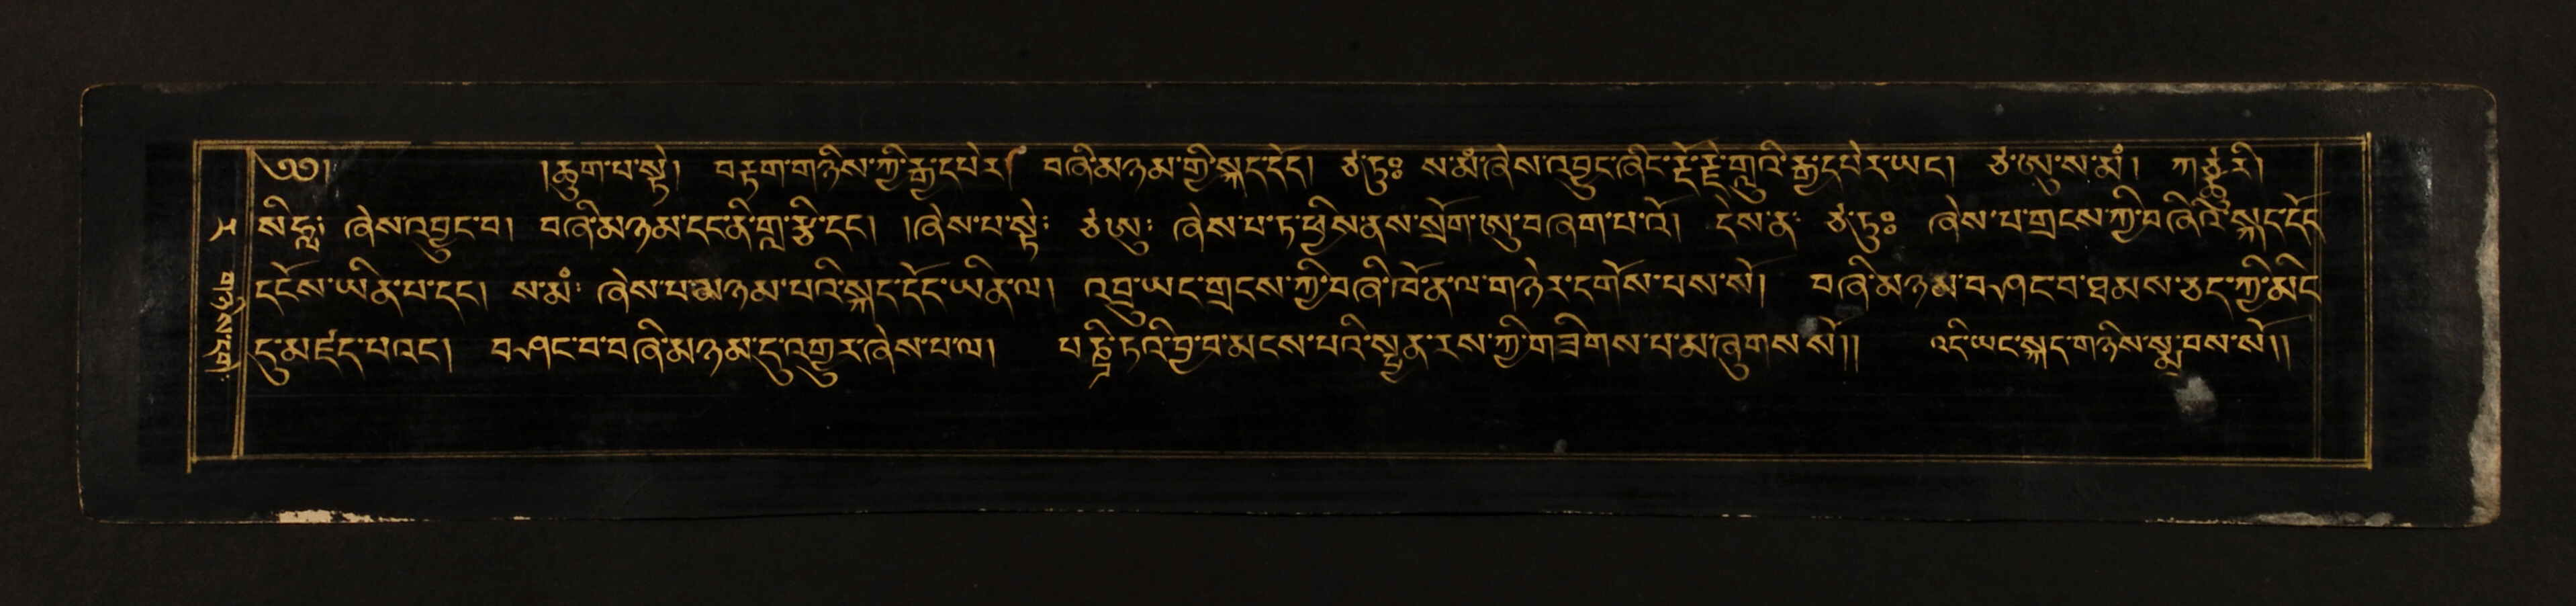 ༄༅། །ཆུག་པ་སྟེ། བརྟག་གཉིས་ཀྱི་རྒྱ་དཔེར། བཞི་མཉམ་གྱི་སྐད་དོད། ཙ་ཏུཿ ས་མཾ་ཞེས་འབྱུང་ཞིང་རྡོ་རྗེ་གླུའི་རྒྱ་དཔེར་ཡང༌། ཙ་ཨུ་ས་མཾ། ཀསྟཱུ་རི།
སི་ཧླ༔ ཞེས་འབྱུང་བ། བཞི་མཉམ་དང་ནི་གླ་རྩི་དང༌། །ཞེས་པ་སྟེ༔ ཙ་ཨུ༔ ཞེས་པ་ཏ་ཕྱིས་ནས་སྲོག་ཨུ་བཞག་པ་འོ། དེས་ན༔ ཙ་ཏུཿ ཞེས་པ་གྲངས་ཀྱི་བཞིའི་སྐད་དོད་
དངོས་ཡིན་པ་དང༌། ས་མཾ༔ ཞེས་པ་མཉམ་པའི་སྐད་དོད་ཡིན་ལ། འབྲུ་ཡང་གྲངས་ཀྱི་བཞི་ཁོ་ན་ལ་གཉེར་དགོས་པས་སོ། བཞི་མཉམ་བཤང་བ་ཐམས་ཅད་ཀྱི་མིང་
དུ་མཛད་པ་འང༌། བཤང་བ་བཞི་མཉམ་དུ་འགྱུར་ཞེས་པ་ལ། པཎྜི་ཏའི་བྱ་བ་མངས་པའི་སྤྱན་རས་ཀྱི་གཟིགས་པ་མ་ཞུགས་སོ།། འདི་ཡང་སྐད་གཉིས་སྨྲ་བས་སོ།།